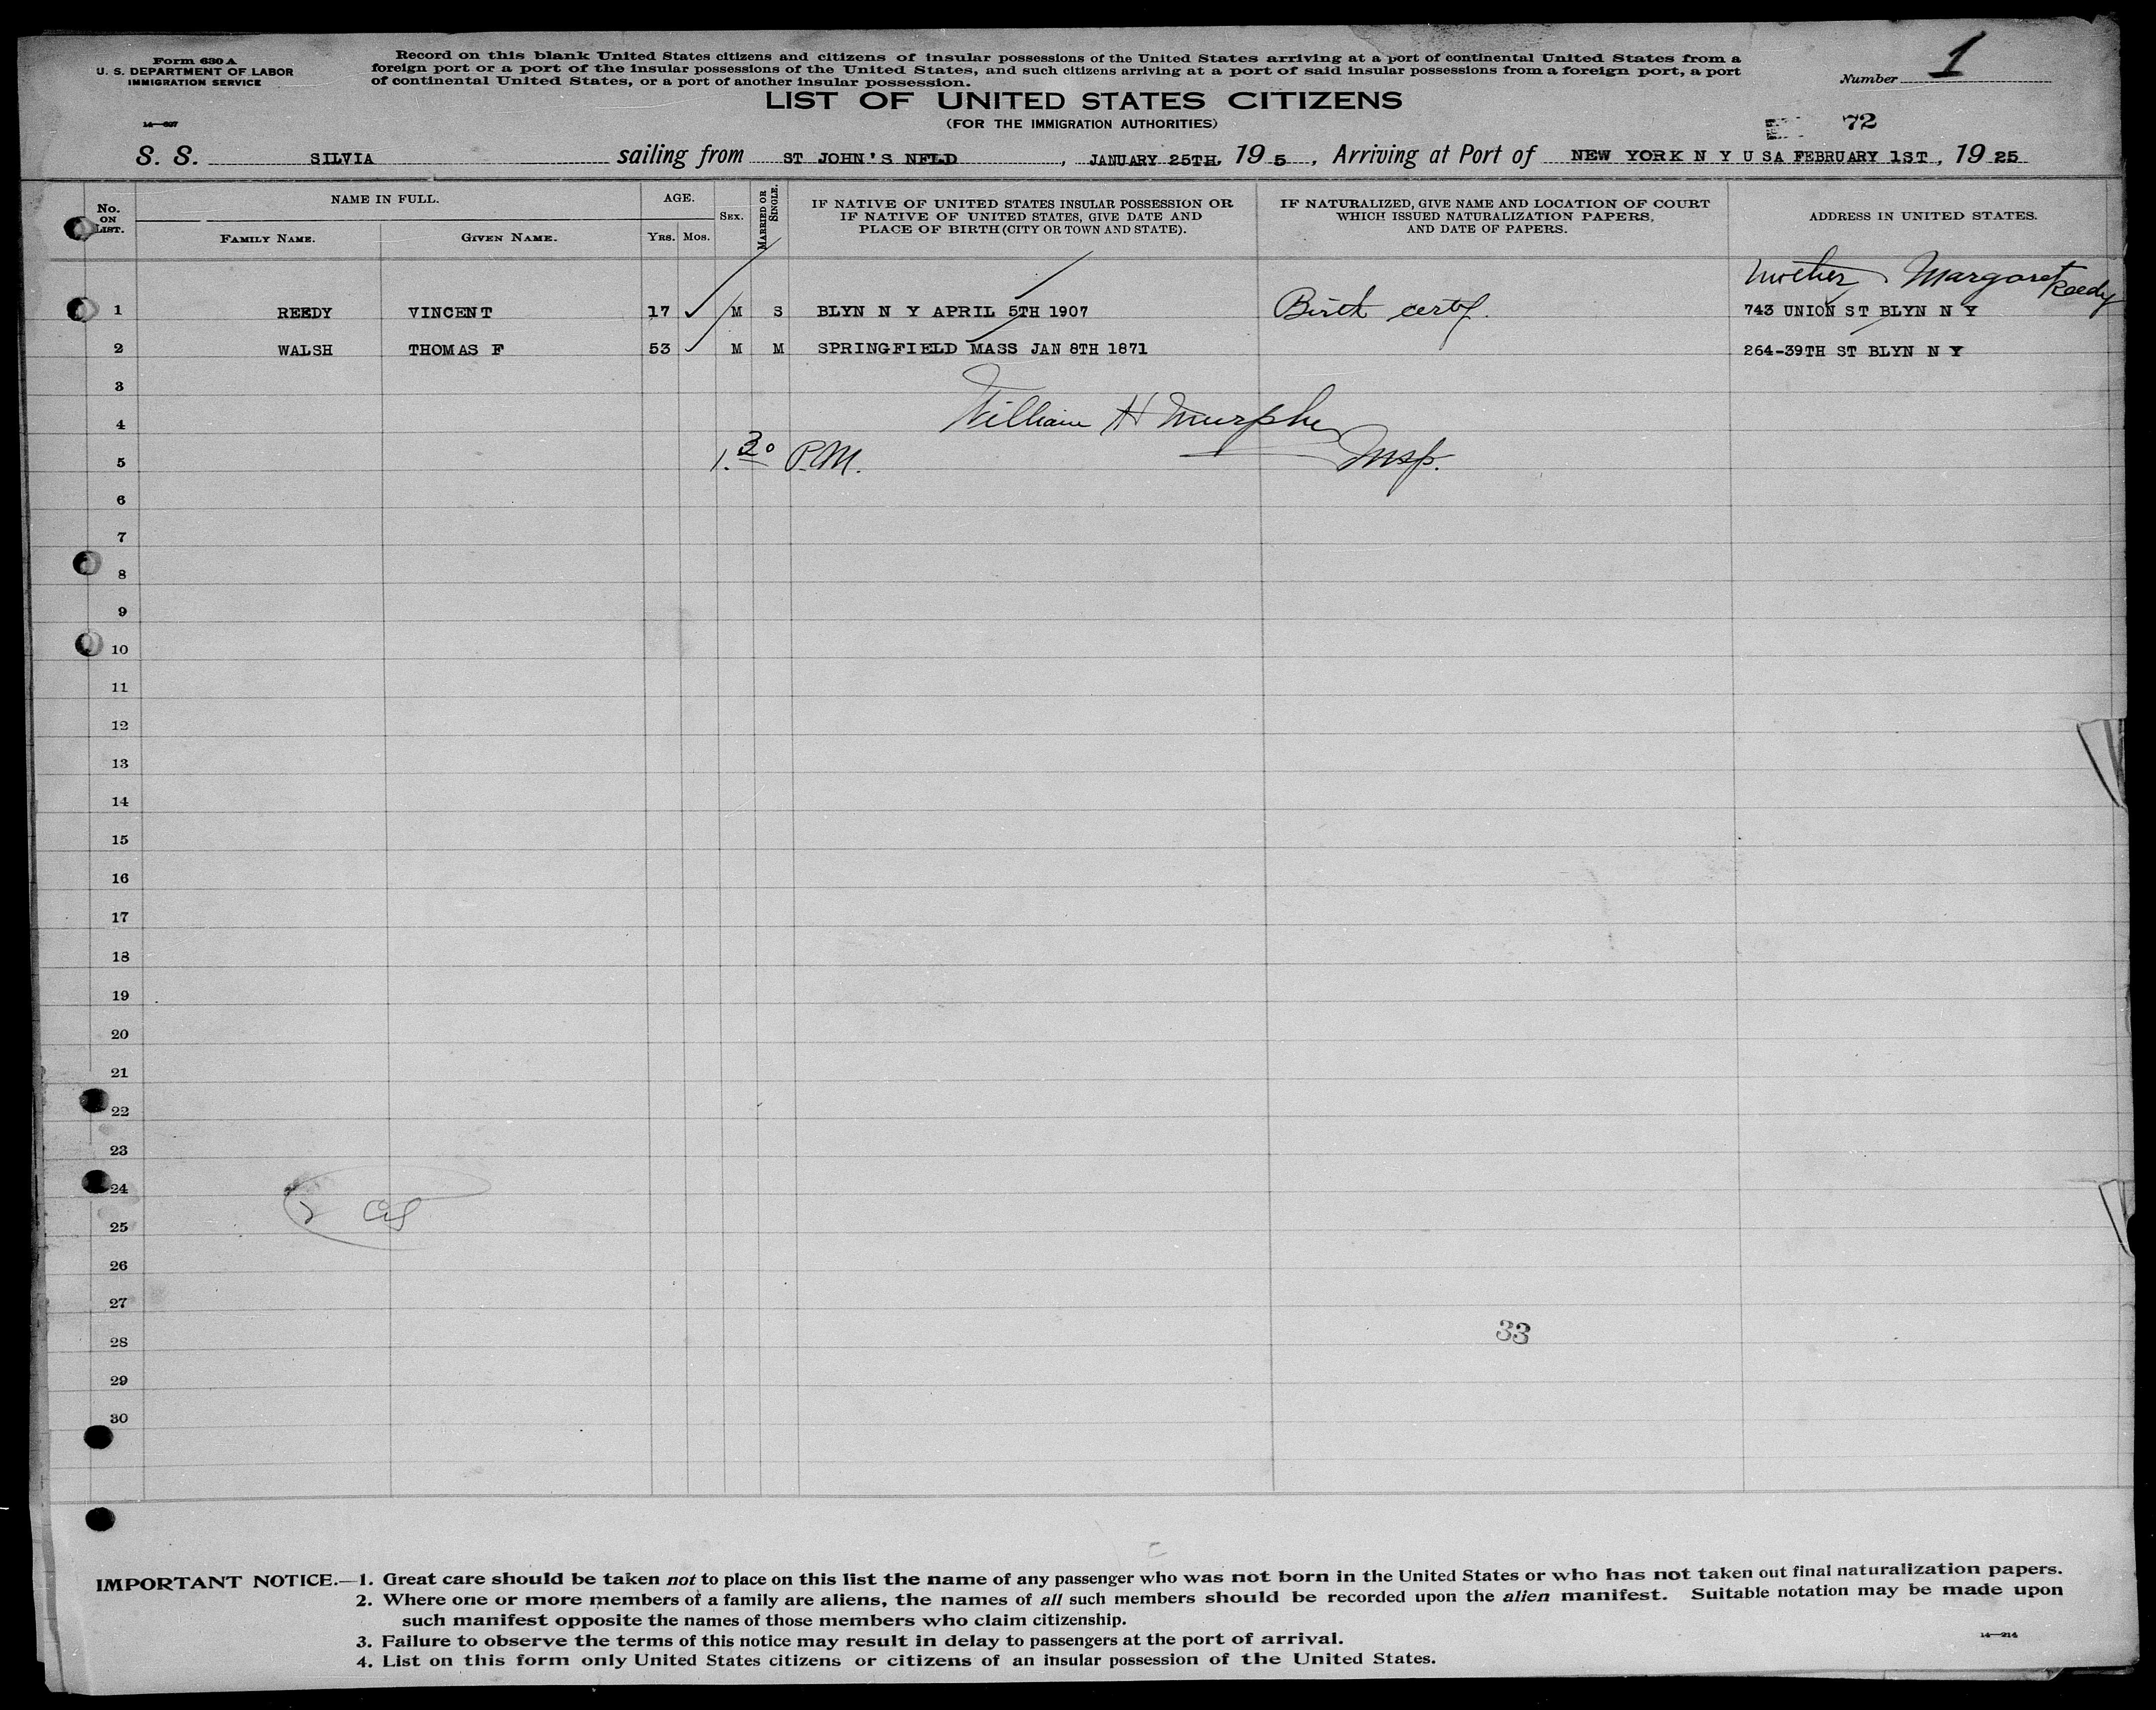 Form 630 A
U. S. DEPARTMENT OF LABOR
IMMIGRATION SERVICE
Record on this blank United States citizens and citizens of insular possessions of the United States arriving at a port of continental United States from a
foreign port or a port of the insular possessions of the United States, and such citizens arriving at a port of said insular possessions from a foreign port, a port
of continental United States, or a port of another insular possession.
Number 1
LIST OF UNITED STATES CITIZENS
(FOR THE IMMIGRATION AUTHORITIES)
14—697
72
S. S. SILVIA sailing from ST JOHN'S NFLD , JANUARY 25TH, 19 5 , Arriving at Port of NEW YORK N Y U SA FEBRUARY 1ST , 19 25
No. ON LIST.
NAME IN FULL.
FAMILY NAME.
GIVEN NAME.
AGE.
YRS.
MOS.
SEX.
MARRIED OR SINGLE.
IF NATIVE OF UNITED STATES INSULAR POSSESSION OR
IF NATIVE OF UNITED STATES, GIVE DATE AND
PLACE OF BIRTH (CITY OR TOWN AND STATE).
IF NATURALIZED, GIVE NAME AND LOCATION OF COURT
WHICH ISSUED NATURALIZATION PAPERS,
AND DATE OF PAPERS.
ADDRESS IN UNITED STATES.
mother Margaret Reedy
1 REEDY VINCENT 17 ✓ M S BLYN N Y APRIL 5TH 1907 Birth certf. 743 UNION ST BLYN N Y
2 WALSH THOMAS F 53 ✓ M M SPRINGFIELD MASS JAN 8TH 1871 264-39TH ST BLYN N Y
3
4 William H Murphy
5 1.30 P.M. Insp.
6
7
8
9
10
11
12
13
14
15
16
17
18
19
20
21
22
23
24
25
26
27
28 33
29
30
IMPORTANT NOTICE.—1. Great care should be taken not to place on this list the name of any passenger who was not born in the United States or who has not taken out final naturalization papers.
2. Where one or more members of a family are aliens, the names of all such members should be recorded upon the alien manifest. Suitable notation may be made upon
such manifest opposite the names of those members who claim citizenship.
3. Failure to observe the terms of this notice may result in delay to passengers at the port of arrival.
4. List on this form only United States citizens or citizens of an insular possession of the United States.
14—214